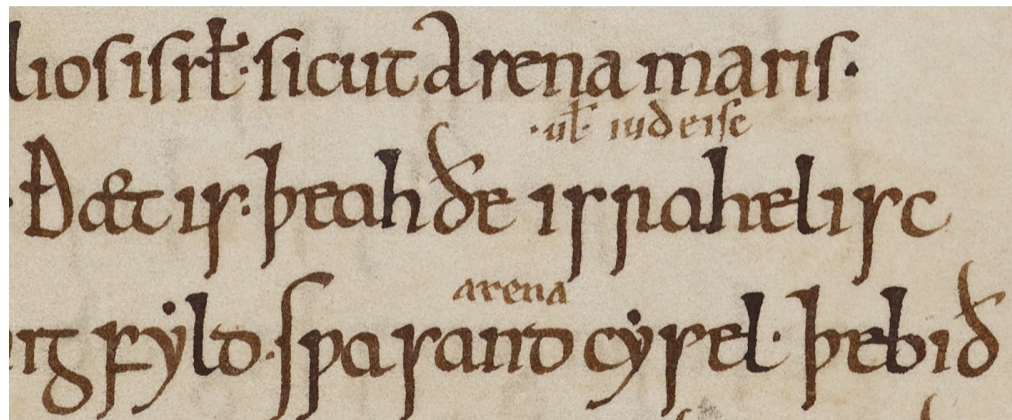 lios isrł· sicut Arena maris·
·uł· iudeisc
Ðæt is· þeah ðe israhelisc
arena
nig fẏld· sƿa sand cẏsel· þe bið